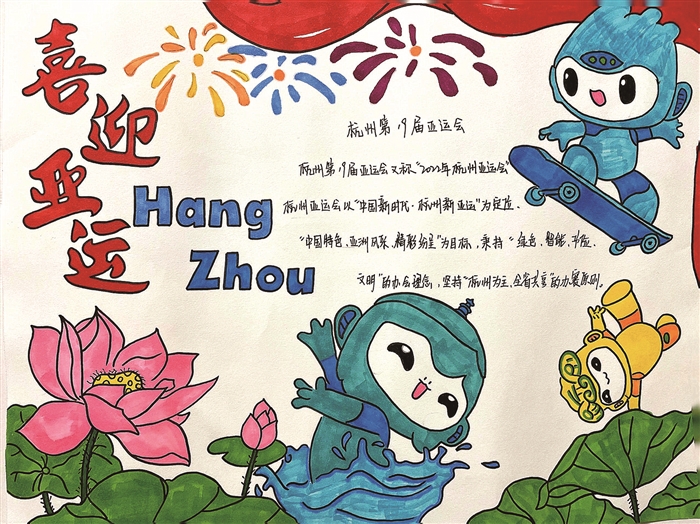 喜迎亚运
Hang
Zhou
杭州第19届亚运会
杭州第19届亚运会又称"2022年杭州亚运会"
杭州亚运会以"中国新时代·杭州新亚运"为定位、
"中国特色、亚洲风采、精彩纷呈"为目标,秉持"绿色、智能、节俭、
文明"的办会理念,坚持"杭州为主、全省共享"的办赛原则。